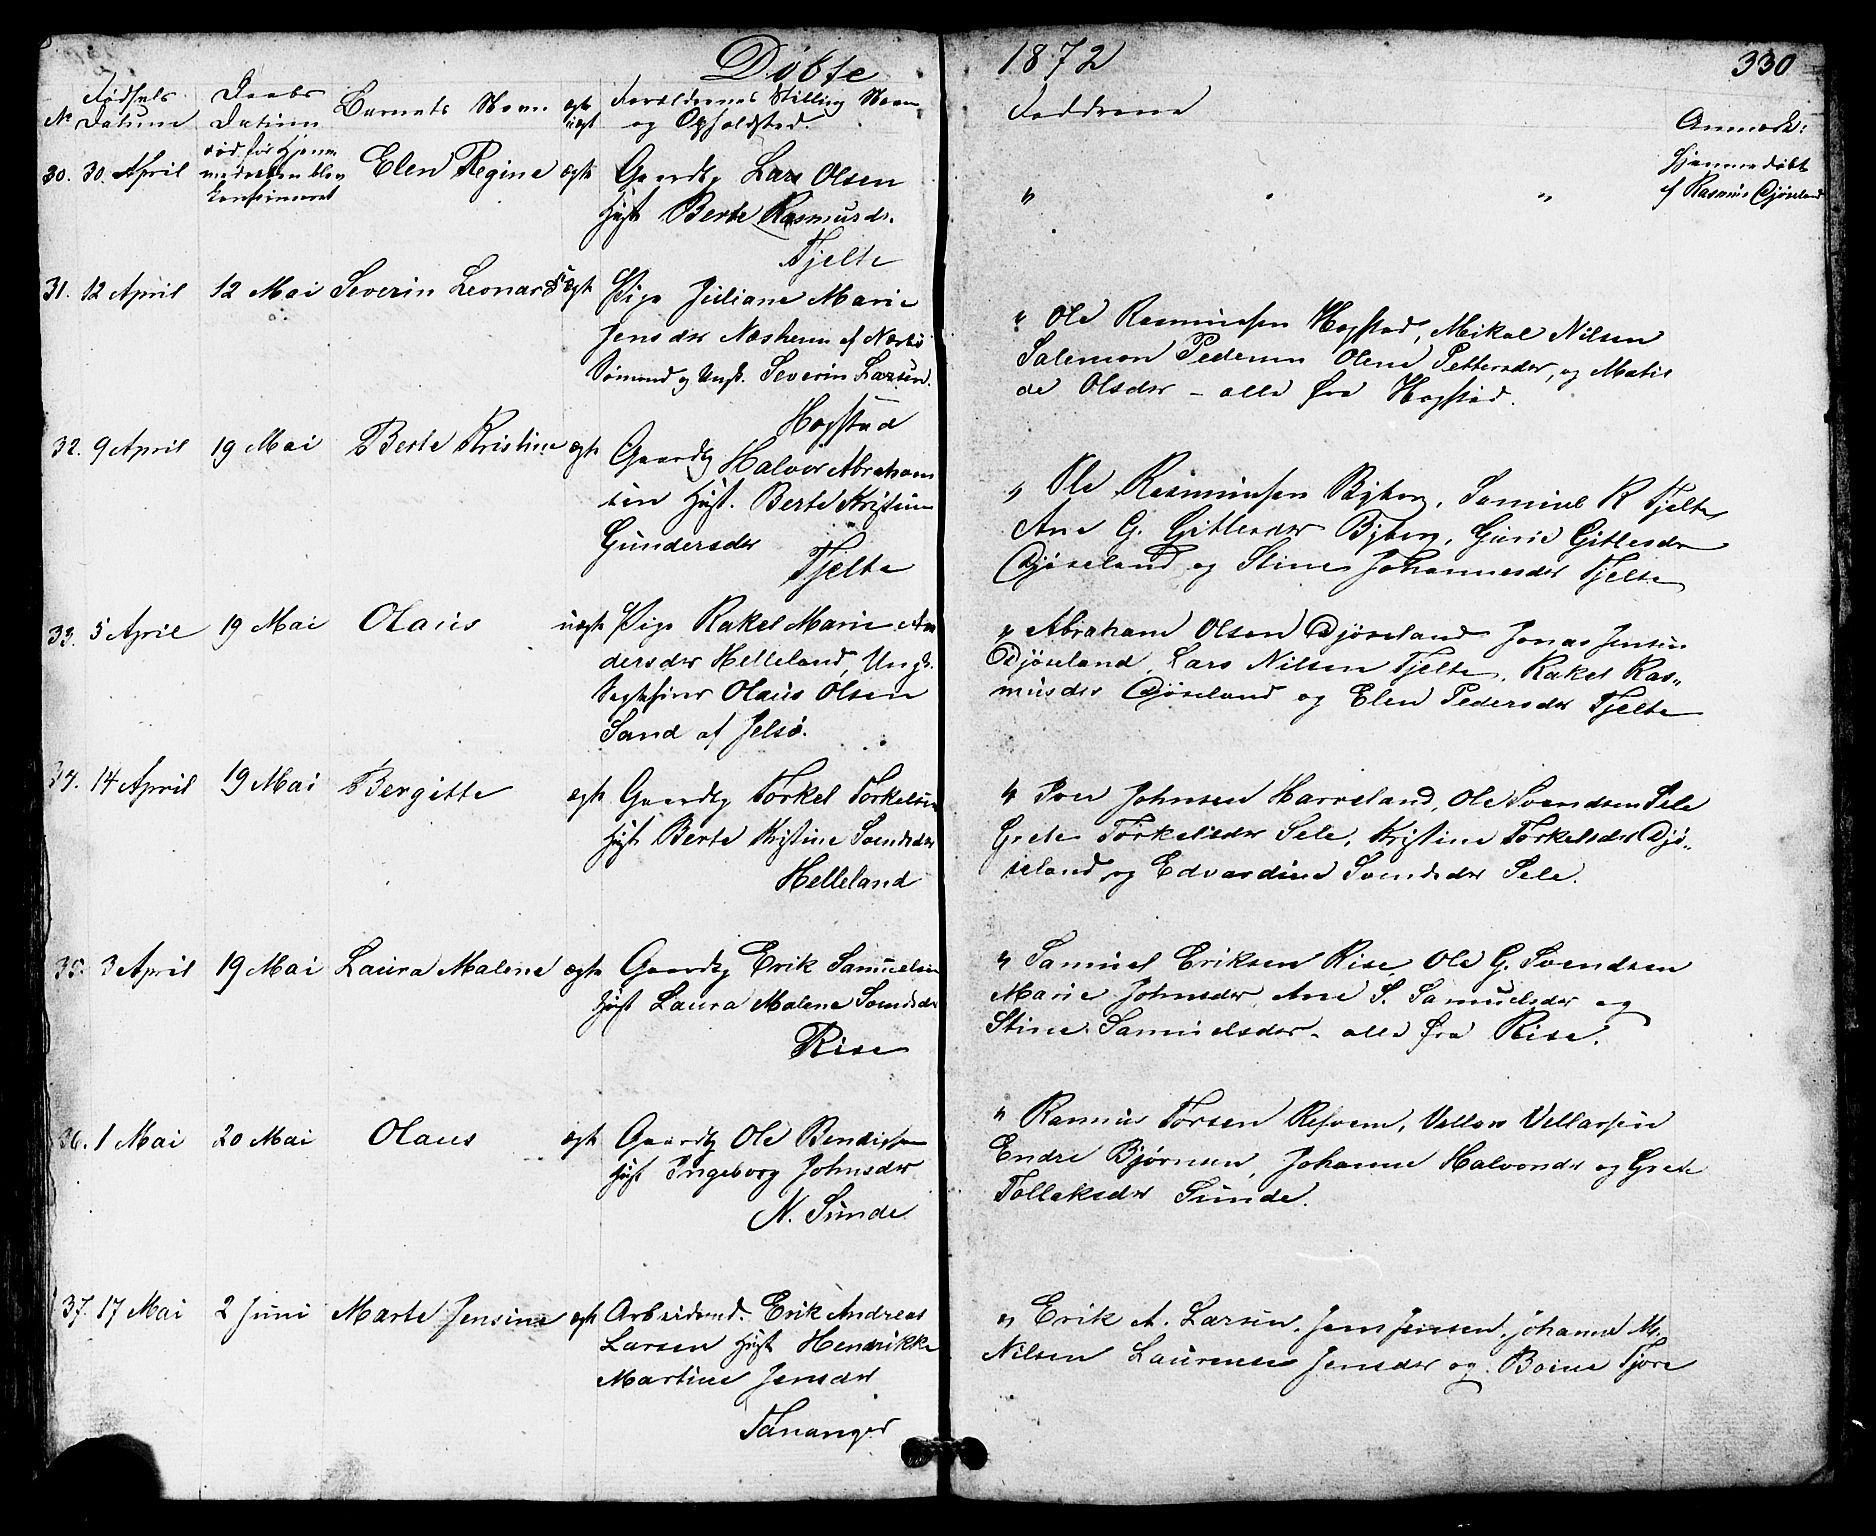 Døbte 1872 330
No Fødsels Datum Daabs Datum Barnets Navn ægte uægt Forældrenes Stilling Navn og Opholdsted. Faddrene Anmærk:
30. 30. April død før Hjemmedaaben blev konfirmeret Elen Regine ægte Gaardbg Lars Olsen
Hust Berte Rasmusdr.
Tjelte
" " " Hjemmedøbt
af Rasmus Djøseland
31. 12 April 12 Mai Severin Leonard uægt Pige Juliane Marie
Jensdr Næsheim af Nærbø
Sømand og Ungk. Severin Larsen.
Hogstad
" Ole Rasmussen Hogstad, Mikal Nilsen
Salemon Pedersen Olene Pettersdr, og Matil
de Olsdr - alle fra Hogstad.
32. 9 April 19 Mai Berte Kristine ægte Gaardbg Halvor Abraham
sen Hust. Berte Kristine
Gundersdr
Tjelte
" Ole Rasmussen Byberg, Samuel R Tjelte
Ane G. Gitlesdr Byberg, Gurie Gitlesdr
Djøseland og Stine Johannesdr Tjelte
33. 5 April 19 Mai Olaus uægte Pige Rakel Marie An
dersdr Helleland, Ungk.
Olaus Olsen
Sand af Jelsø.
" Abraham Olsen Djøseland Jonas Jensen
Djøseland, Lars Nilsen Tjelte, Rakel Ras„
musdr Djøseland og Elen Pedersdr Tjelte
34. 14 April 19 Mai Bergitte ægte Gaardbg Torkel Torkelsen
Hust Berte Kristine Svendsdr
Helleland
" Iver Johnsen Harveland, Ole Svendsen Sele
Grete Torkelsdr Sele, Kristine Torkelsdr Djø„
seland og Edvardine Svendsdr Sele.
35. 3 April 19 Mai Laura Malene ægte Gaardbg Erik Samuelsen
Hust Laura Malene Svendsdr
Risa
" Samuel Eriksen Risa, Ole G. Svendsen
Marie Johnsdr, Ane S. Samuelsdr og
Stine Samuelsdr - alle fra Risa.
36. 1 Mai 20 Mai Olaus ægte Gaardbg Ole Bendigsen
Hust Ingeborg Johnsdr
N. Sunde
" Rasmus Torsen Refsem, Vellas Vellassen
Endre Bjørnsen, Johanne Halvorsdr og Grete
Tollaksdr Sunde.
37. 17 Mai 2 Juni Marte Jensine ægte Arbeidsmd. Erik Andreas
Larsen Hust Hendrikke
Martine Jensdr
Tananger
" Erik A. Larsen, Jens Jensen, Johanne M.
Nilsen Laurense Jensdr og Boine Tjore